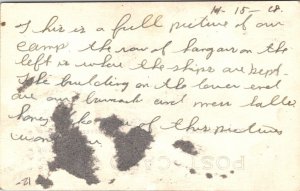 11-15-18.
This is a full picture of our
camp the row of hangars on the
left is where the ships are kept.
The building on the lower end
are our barrack and mess halls
of this picture
POST CARD